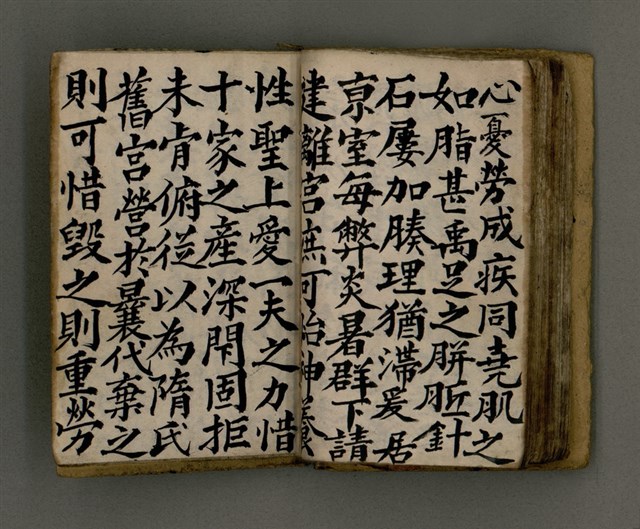 心憂勞成疾同堯肌之
如脂甚禹足之腁胝針
石屢加腠理猶滯爰居
京室每弊炎暑群下請
建離宮庶可怡神養
性聖上愛一夫之力惜
十家之產深閇固拒
未肯俯從以為隋氏
舊宮營於曩代棄之
則可惜毀之則重勞